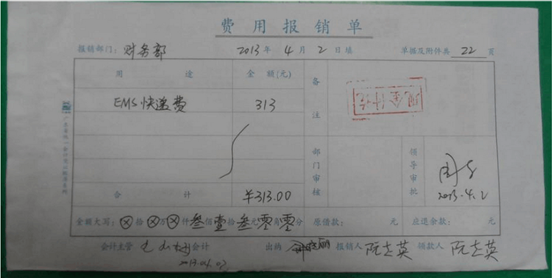 费用报销单
报销部门：财务部 2013年4月2日填 单据及附件共22页
用途 金额(元) 备注
EMS快递费 313
现金付讫
部门审核 领导审批
2013.4.2
合计 ¥313.00
金额大写：⊗拾⊗万⊗仟叁佰壹拾叁元零角零分 原借款：元 应退余款：元
会计主管 会计 出纳 报销人 阮志英 领款人 阮志英